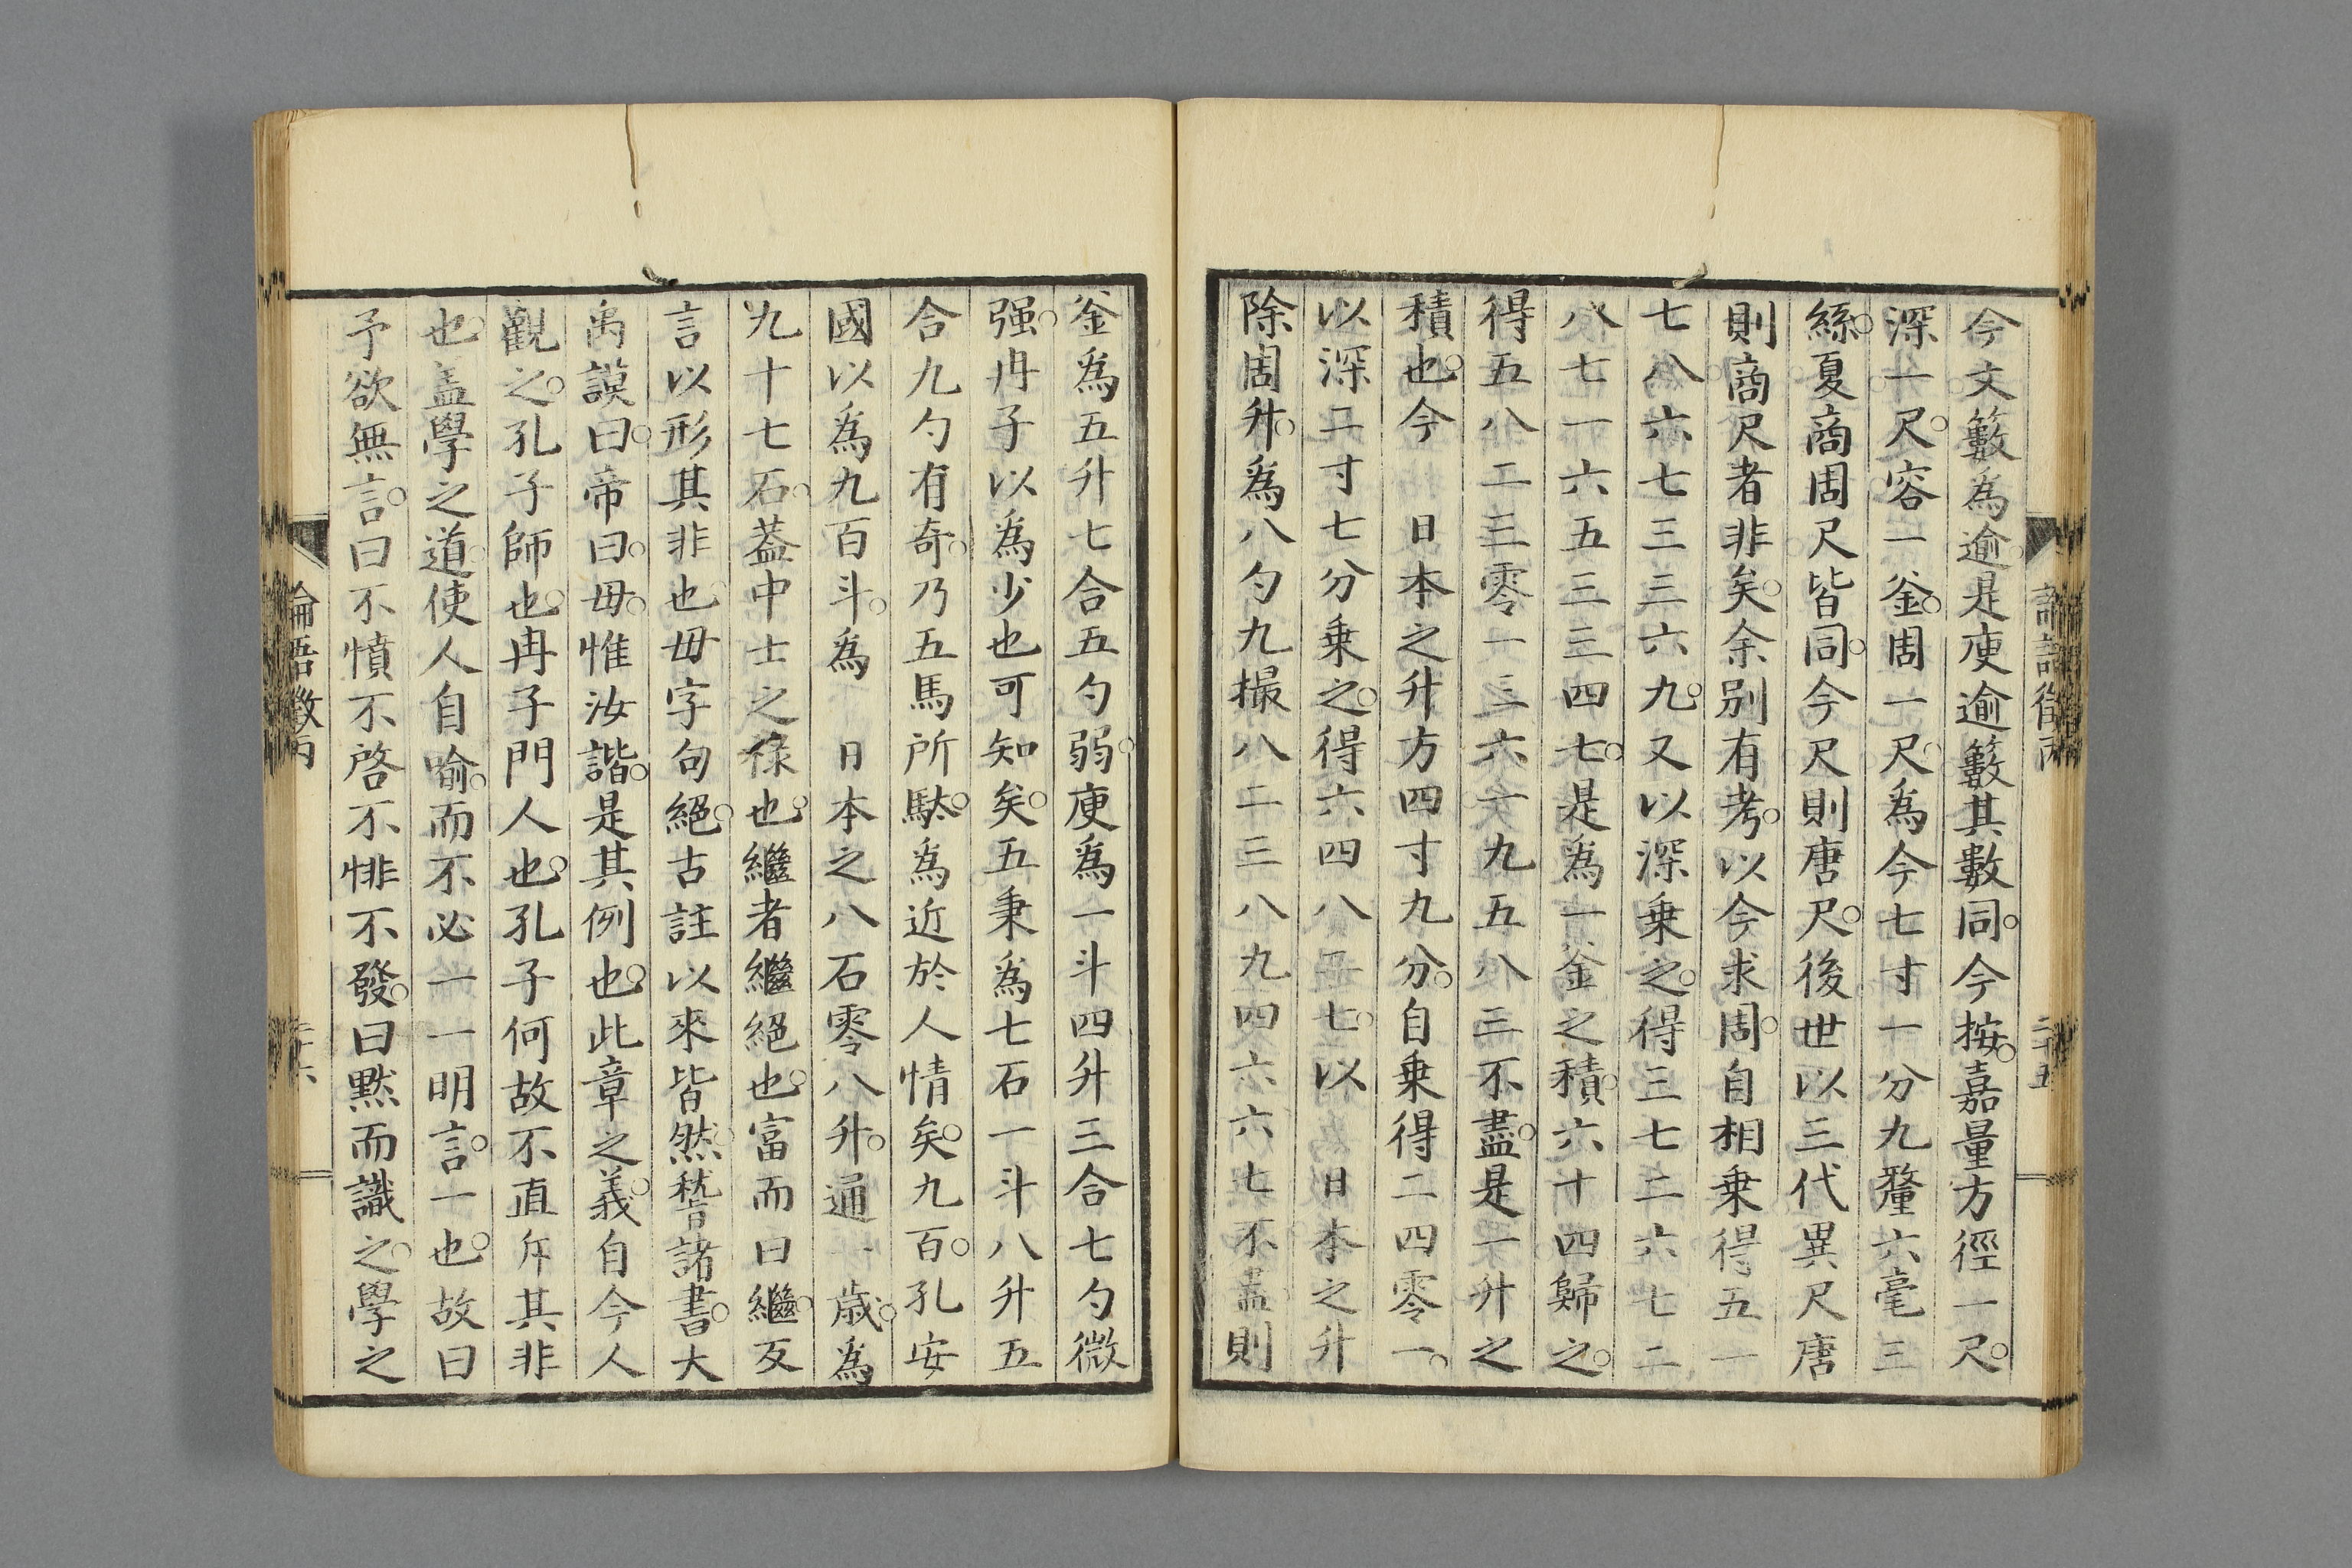 今文籔為逾是庾逾籔其數同今按嘉量方徑一尺
深一尺容一釜周一尺爲今七寸一分九釐六毫三
絲夏商周尺皆同今尺則唐尺後世以三代異尺唐
則商尺者非矣余別有考以今求周自相乗得五一
七八六七三三六九又以深乗之得三七二六七二
八七一六五三三四七是爲一釜之積六十四歸之
得五八二三零一三六六九五八三不盡是一升之
積也今 日本之升方四寸九分自乗得二四零一
以深二寸七分乗之得六四八二七以 日本之升
除周升爲八勺九撮八二三八九四六六七不盡則
釜爲五升七合五勺弱庾爲一斗四升三合七勺微
强冉子以爲少也可知矣五秉爲七石一斗八升五
合九勺有奇乃五馬所駄爲近於人情矣九百孔安
國以爲九百斗爲 日本之八石零八升通一歳爲
九十七石葢中士之祿也繼者繼絕也富而曰繼反
言以形其非也毋字句絕古註以來皆然嵇諸書大
禹謨曰帝曰毋惟汝諧是其例也此章之義自今人
觀之孔子師也冉子門人也孔子何故不直斥其非
也盖學之道使人自喻而不必一一明言一也故曰
予欲無言曰不憤不啓不悱不發曰黙而識之學之
論語徵丙